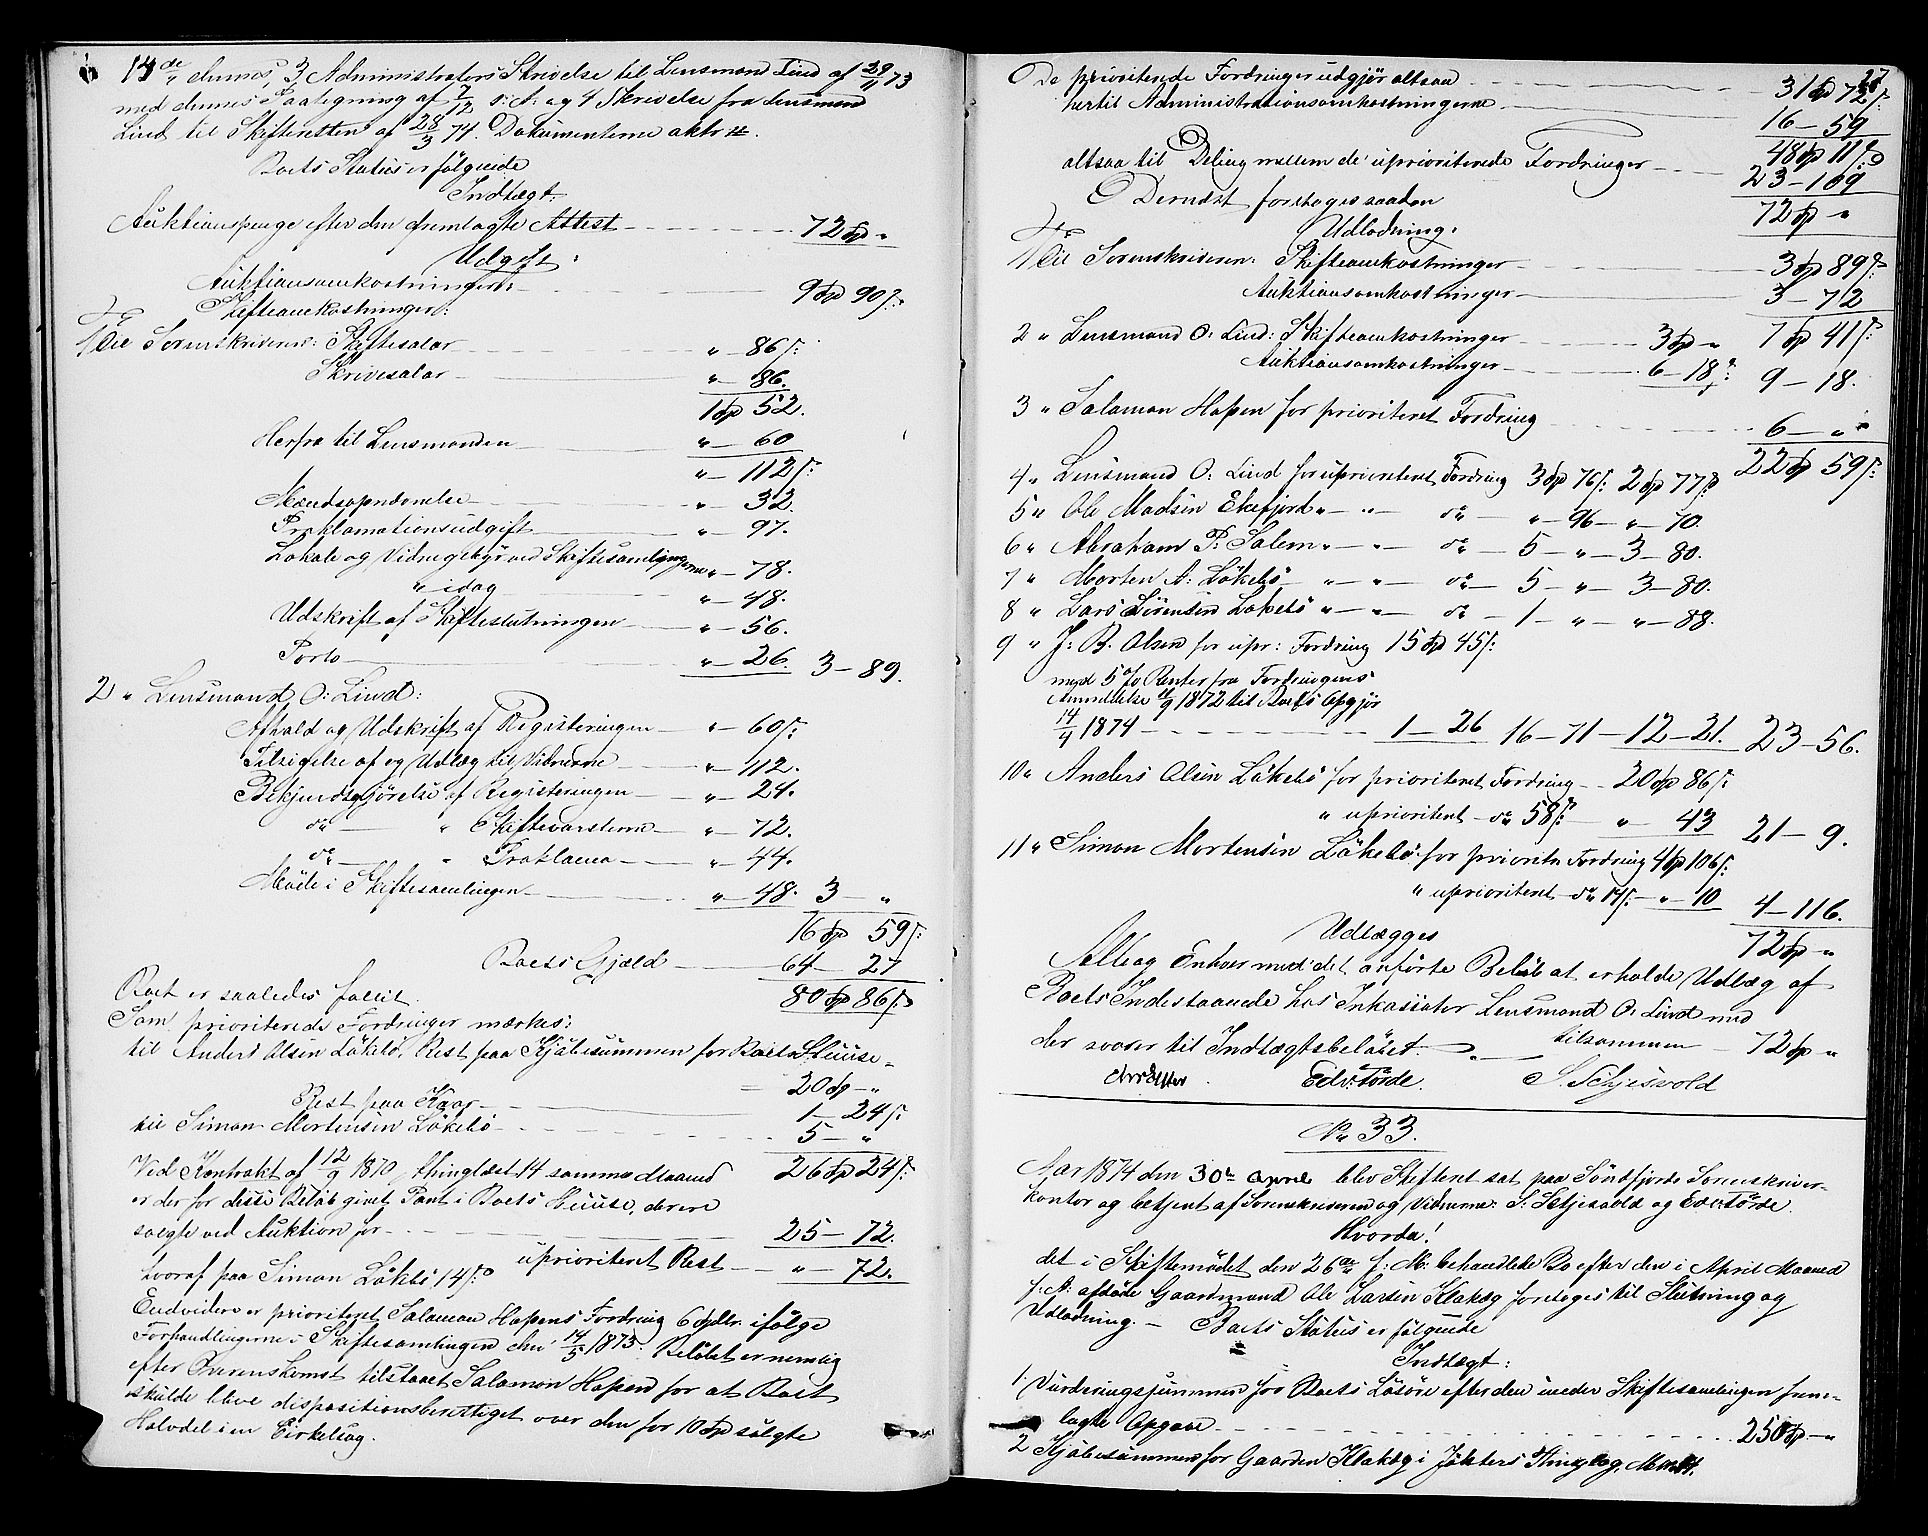 14de dennes, 3 Administrators Skrivelse til Lensmand Lind af 29/11 73
med dennes Paategning af 7/12 s: A: og 4 Skrivelse fra Lensmand
Lind til Skifteretten af 28/3 74. Dokumenterne aktr ...
Boets Status er følgende
Indtægt:
Auktionspenge efter den fremlagte Attest 72 Sp "
Udgift:
Auktionsomkostninger: 9 Sp 90 ß:
Skifteomkostninger:
1 Til Sorenskriveren: Skiftesalær " – 86 ß:
Skrivesalær " – 86.
1 Sp 52.
Herfra til Lensmanden " – 60
" – 112 ß:
Mændsopnævnelse " – 32.
Proklamationsudgift " – 97.
Lokale og Vidnegebyr ved Skiftesamlingerne " – 78.
" idag " – 48.
Udskrift af Skifteslutningen " – 56.
Porto " – 26. 3 – 89.
2 " Lensmand O: Lind:
Afhold og Udskrift af Registeringen " – 60 ß:
Tilsigelse af og Udlæg til Vidnerne " – 112.
Bekjendtgjørelse af Registeringen " – 24.
do " Skiftevarslerne " – 72.
do " Proklama " – 44.
Møde i Skiftesamlingen " – 48. 3 – "
16 Sp 59 ß:
Boets Gjæld 64 – 27
Boet er saaledes fallit. 80 Sp 86 ß:
Som prioriterede Fordringer mærkes:
til Anders Olsen Løkebø, Rest paa Kjøbesummen for Boets Huuse
20 Sp – "
Rest paa Kaar 1 – 24 ß:
til Simon Mortensen Løkebø 5 – "
Ved Kontrakt af 12/9 1870, thinglæst 14 samme Maaned 26 Sp 24 ß:
er der for disse Beløb givet Pant i Boets Huuse, der ere
solgte ved Auktion for 25 – 72.
hvoraf paa Simon Løkebø 14 ß: uprioriteret Rest " – 72.
Endvidere er prioriteret Salamon Hopens Fordring 6 Spdlr. ifølge
Forhandlingerne i Skiftesamlingen den 14/5 1873. Beløbet er nemlig
efter Overenskomst tilstaaet Salamon Hopen for at Boet
skulde blive dispositionsberettiget over den for 10 Sp solgte
Halvdel i en Cirkelsag.
27
De prioriterede Fordringer udgjør altsaa 31 Sp 72 ß:
hertil Administrationsomkostningerne 16 – 59
48 Sp 11 ß:
altsaa til Deling mellem de uprioriterede Fordringer 23 – 109
Dernæst foretoges saadan 72 Sp "
Udlodning:
1 Til Sorenskriveren: Skifteomkostninger 3 Sp 89 ß:
Auktionsomkostninger 3 – 72
2 " Lensmand O: Lind: Skifteomkostninger 3 Sp " 7 Sp 41 ß:
Auktionsomkostninger 6 – 18 ß: 9 – 18.
3 " Salamon Hopen for prioriteret Fordring 6 – "
22 Sp 59 ß:
4 " Lensmand O: Lind for uprioriteret Fordring 3 Sp 76 ß: 2 Sp 77 ß
5 " Ole Madsen Ekefjord " – " – do – " – 96 – " – 70.
6 " Abraham P: Salem " – " – do – 5 – " – 3 – 80.
7 " Morten A: Løkebø " – " – do – 5 – " – 3 – 80.
8 " Lars Sørensen Løkebø " – " – do – 1 – " – " – 88.
9 " J: B. Olsen for upr: Fordring 15 Sp 45 ß:
med 5 o/o Renter fra Fordringens
Anmeldelse 11/9 1872 til Boets Opgjør
14/4 1874 1 – 26 16 – 71 – 12 – 21. 23 – 56.
10 " Anders Olsen Løkebø for prioriteret Fordring 20 Sp 86 ß:
" uprioriteret do 58 ß: " 43 21 – 9.
11 " Simon Mortensen Løkebø for priorite Fordring 4 Sp 106 ß:
" uprioriteret do 14 ß: " – 10 4 – 116.
Udlægges 72 Sp "
Alle og Enhver med det anførte Beløb at erholde Udlæg af
Boets Indestaaende hos Inkassator Lensmand O: Lind med
der svarer til Indtægtsbeløbet. tilsammen 72 Sp "
Edv: Førde. S. Setjesvold
No 33.
Aar 1874 den 30te April blev Skifteret sat paa Søndfjords Sorenskriver-
kontor og betjent af Sorenskriveren og Vidnerne: S. Setjesvold og Edv: Førde.
Hvorda!
det i Skiftemødet den 26de f: M: behandlede Bo efter den i April Maaned
f: A: afdøde Gaardmand Ole Larsen Klakeg foretoges til Slutning og
Udlodning. – Boets Status er følgende
Indtægt:
1. Vurderingssummen for Boets Løsøre efter den under Skiftesamlingen frem-
lagte Opgave 250 Sp – "
2 Kjøbesummen for Gaarden Klakeg i Jølsters Thinglag, M...